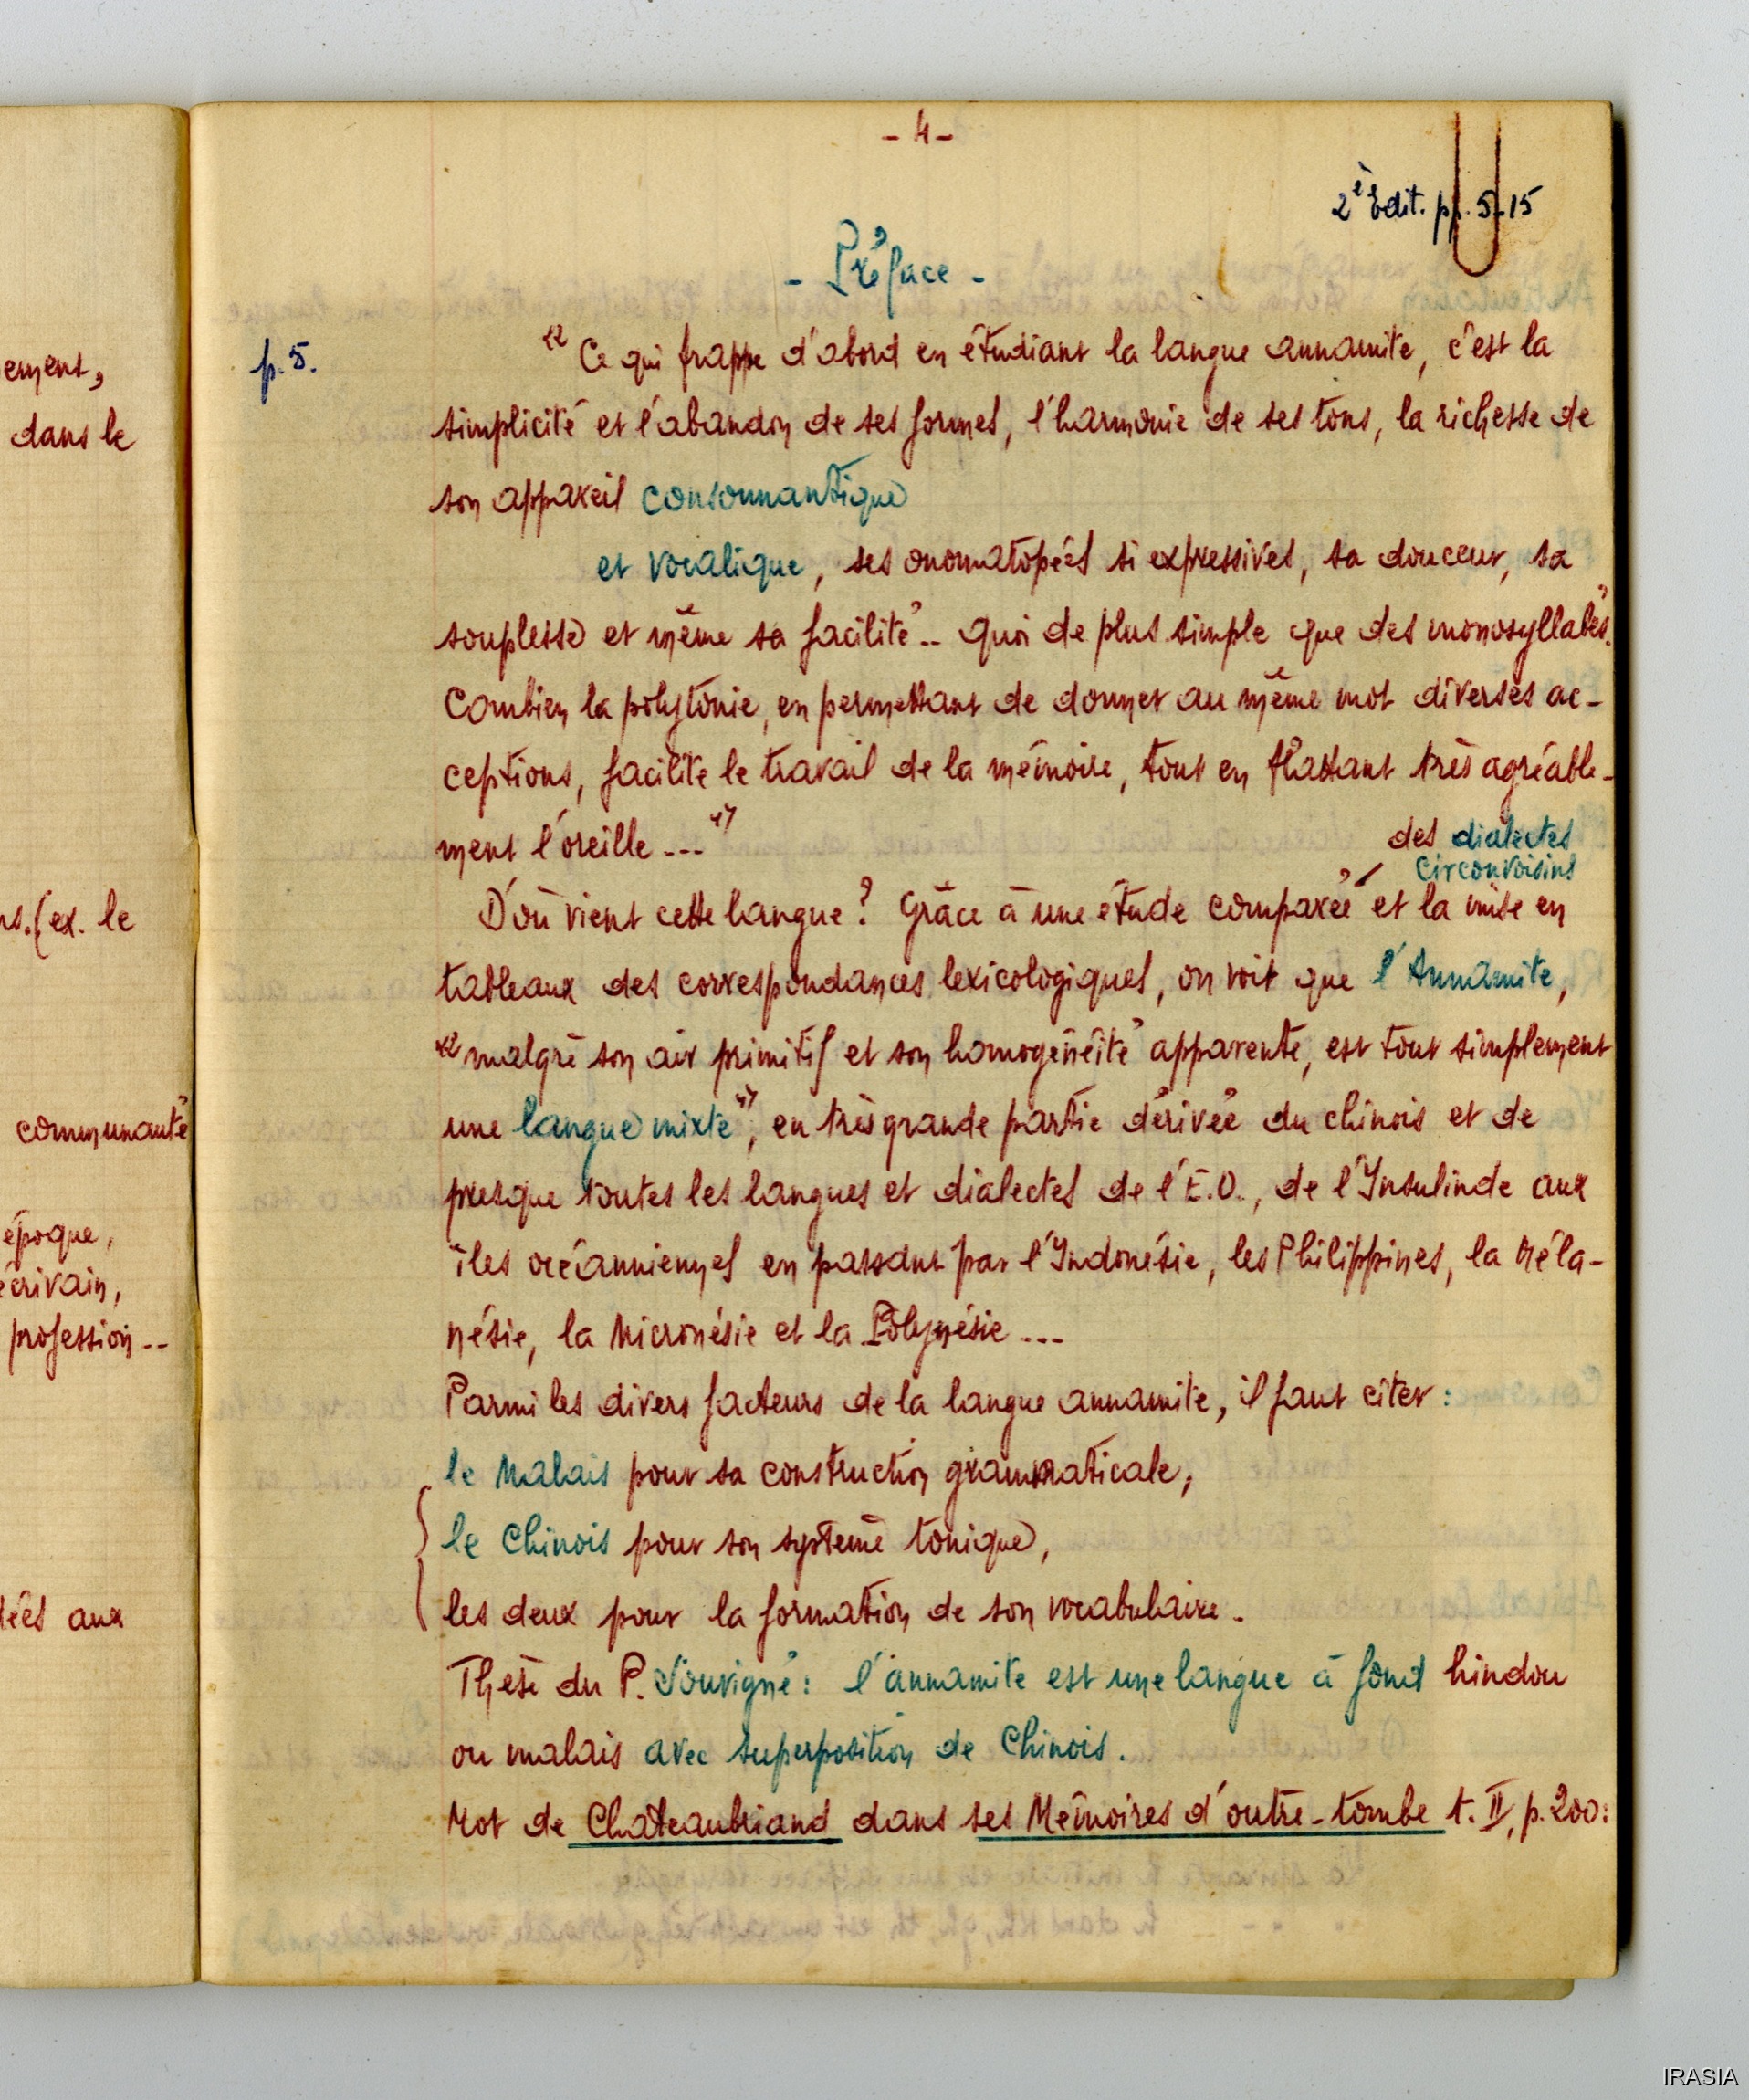 ement,
dans le
ns. (ex. le
communauté
époque,
écrivain,
profession --
dées aux
- 4 -
2è Edit. pp. 5-15
- Préface -
p. 5.
« Ce qui frappe d'abord en étudiant la langue annamite, c'est la
simplicité et l'abandon de ses formes, l'harmonie de ses tons, la richesse de
son appareil consonnantique
et vocalique, ses onomatopées si expressives, sa douceur, sa
souplesse et même sa facilité -- Quoi de plus simple que des monosyllabes.
Combien la polytonie, en permettant de donner au même mot diverses ac-
ceptions, facilite le travail de la mémoire, tout en flattant très agréable-
ment l'oreille --- »
des dialectes
circonvoisins
D'où vient cette langue ? Grâce à une étude comparée et la mise en
tableaux des correspondances lexicologiques, on voit que l'Annamite,
« malgré son air primitif et son homogénéité apparente, est tout simplement
une langue mixte », en très grande partie dérivée du chinois et de
presque toutes les langues et dialectes de l'E.O., de l'Insulinde aux
îles océanniennes en passant par l'Indonésie, les Philippines, la Méla-
nésie, la Micronésie et la Polynésie ---
Parmi les divers facteurs de la langue annamite, il faut citer :
le Malais pour sa construction grammaticale,
le Chinois pour son système tonique,
les deux pour la formation de son vocabulaire.
Thèse du P. Souvigné : l'annamite est une langue à fond hindou
ou malais avec superposition de Chinois.
Mot de Chateaubriand dans ses Mémoires d'outre-tombe t. II, p. 200 :
IRASIA